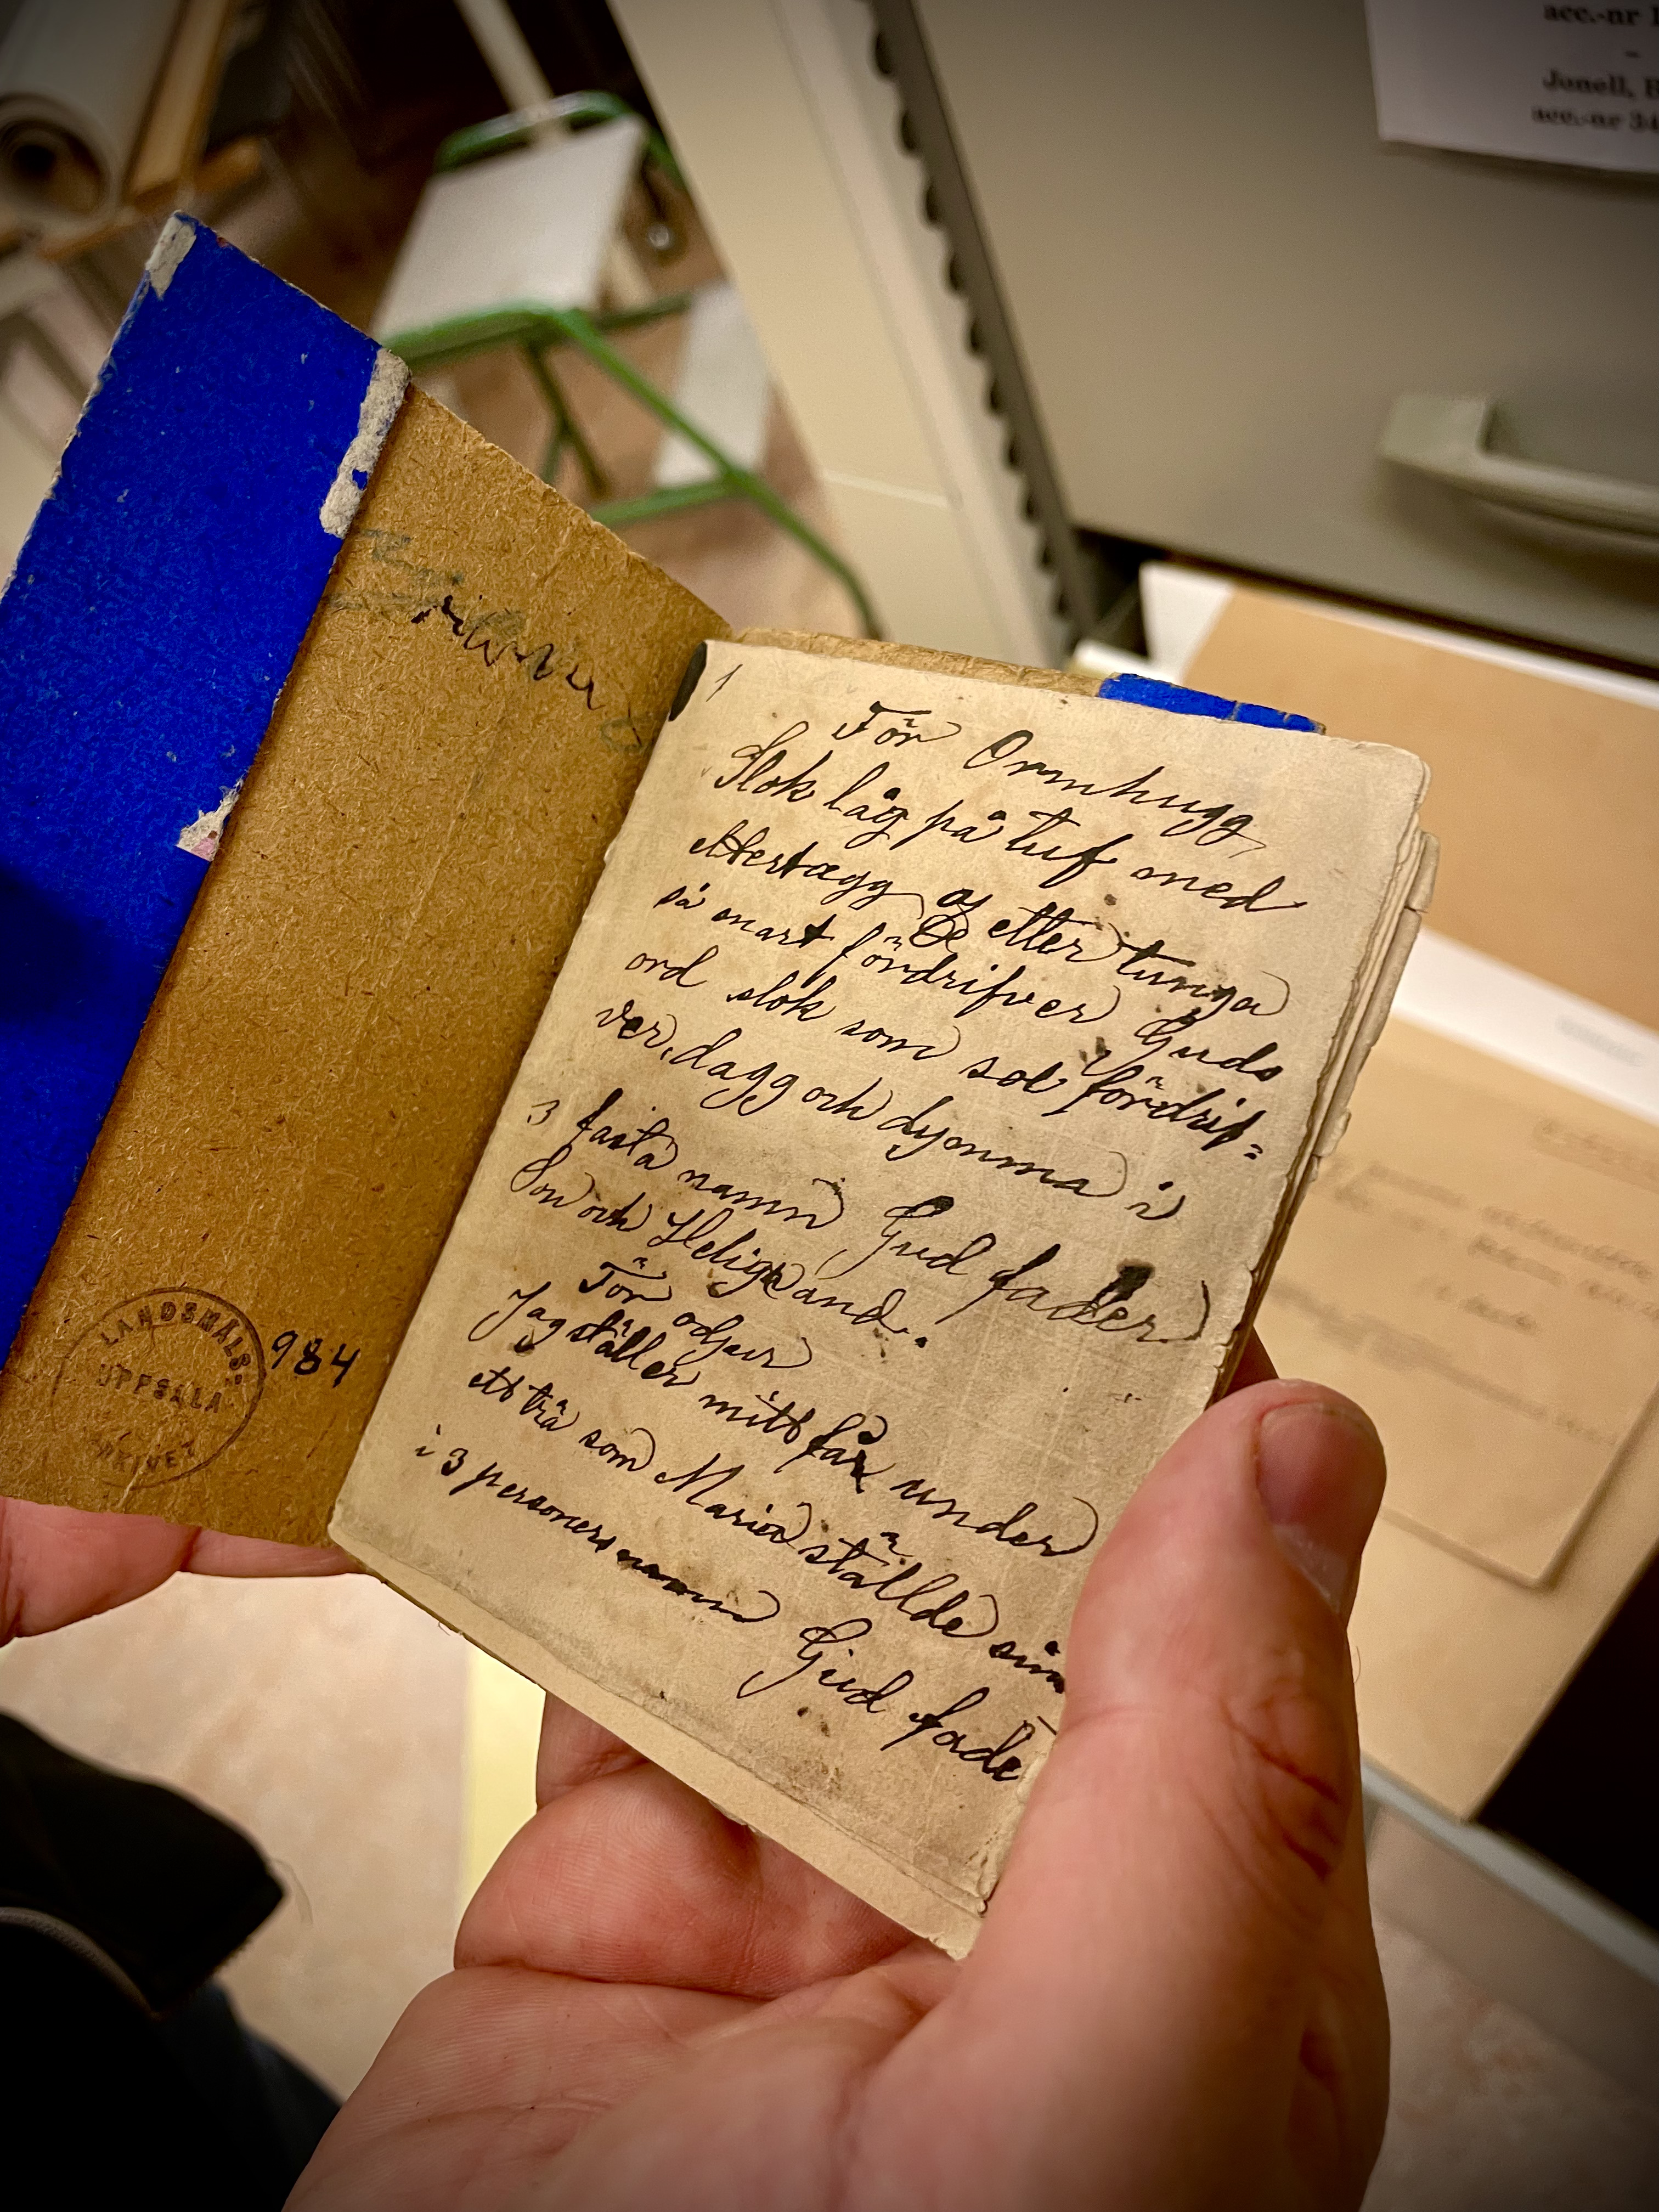 acc.-nr
-
Jonell, B
acc.-nr 34
1
För Ormhugg
Slok låg på tuf med
ettertagg och etter tunga
så snart fördrifver Guds
ord slok som sol fördrif=
ver dagg och dymma i
3 fasta namn Gud fader
Son och Helig and.
För
Jag ställer mitt får under
ett trä som Maria stållde sin
i 3 personers namn Gud fade
LANDSMÅLS-
UPPSALA
ARKIVET
984